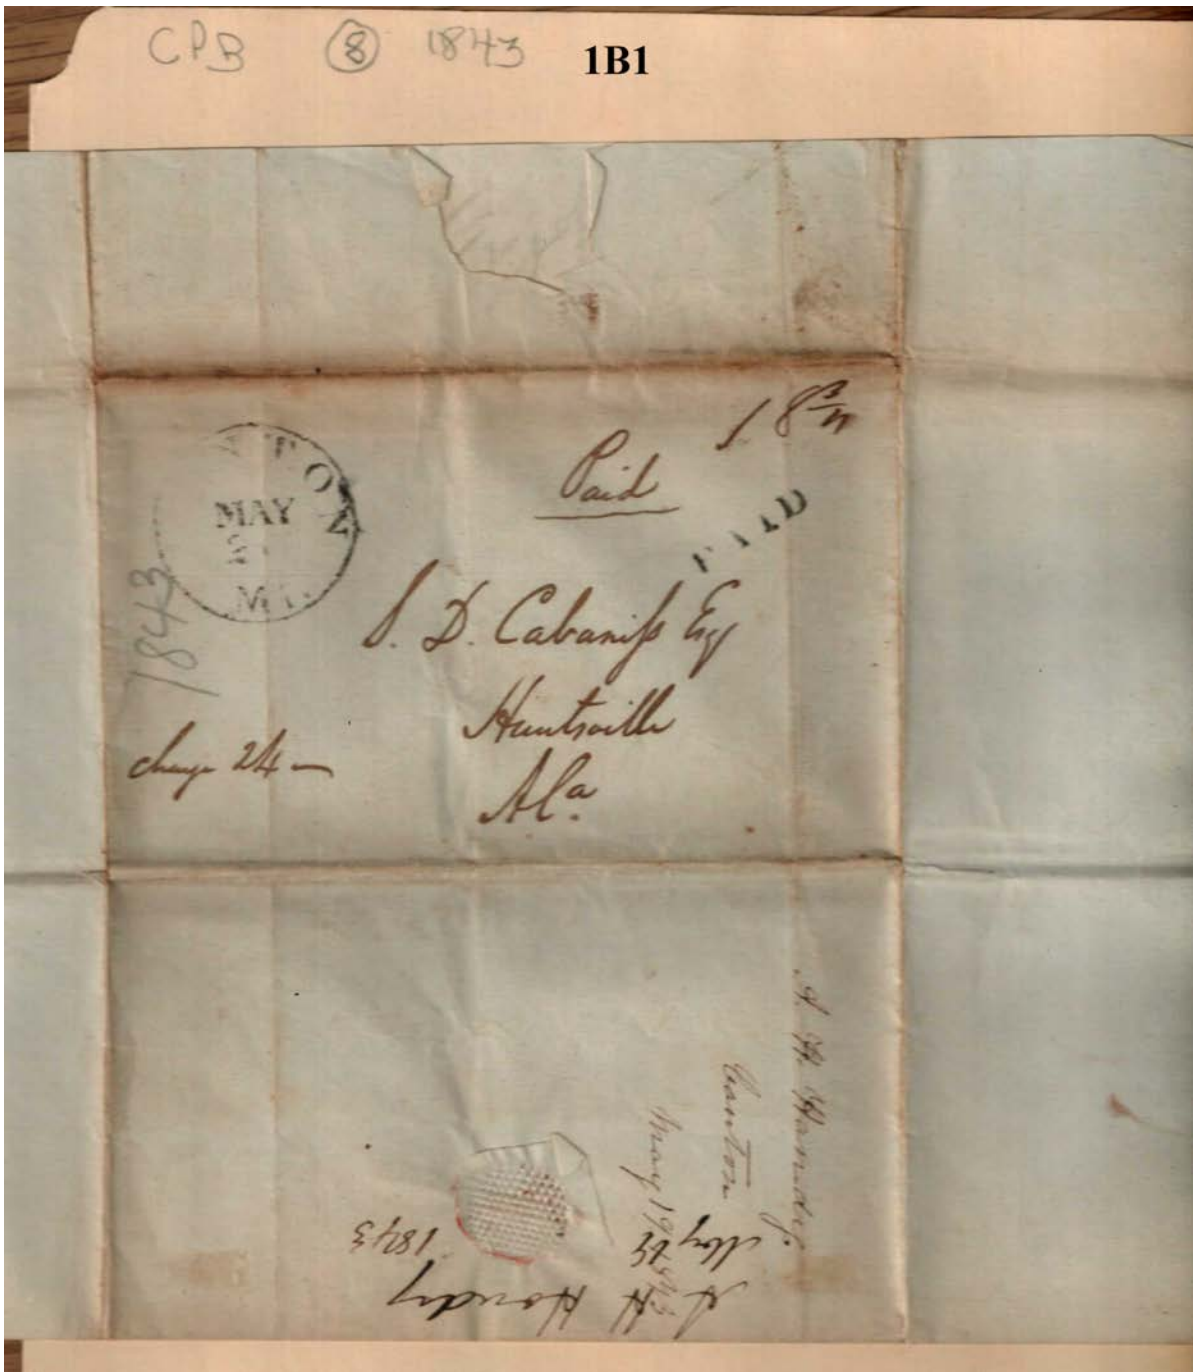 CPB 8 1843 1B1
18 3/4
Paid
PAID
TON
MAY
MI.
1843
S. D. Cabaniss Esq
Huntsville
Ala.
charge 24
A. H. Handy
Canton
May 19 1843
A H Handy
May
1843